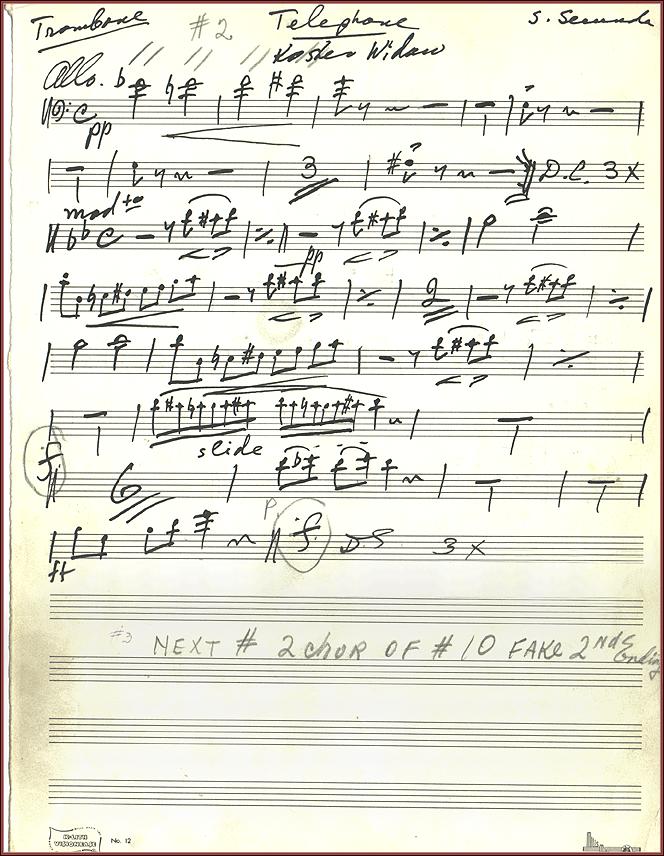 Trombone #2 Telephone S. Secunda
Kosher Widow
Allo.
pp
3 D.C. 3X
modto
pp
2
slide
6
P.
ff D.S 3X
#3 NEXT # 2 chor OF # 10 FAKE 2nd Ending
No. 12